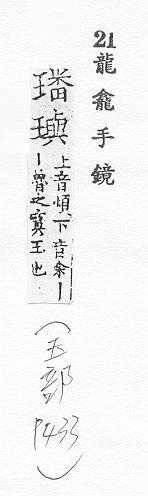 21 龍龕手鏡
璠璵
上音煩下音余丨
丨魯之寳玉也
（玉部 P433）